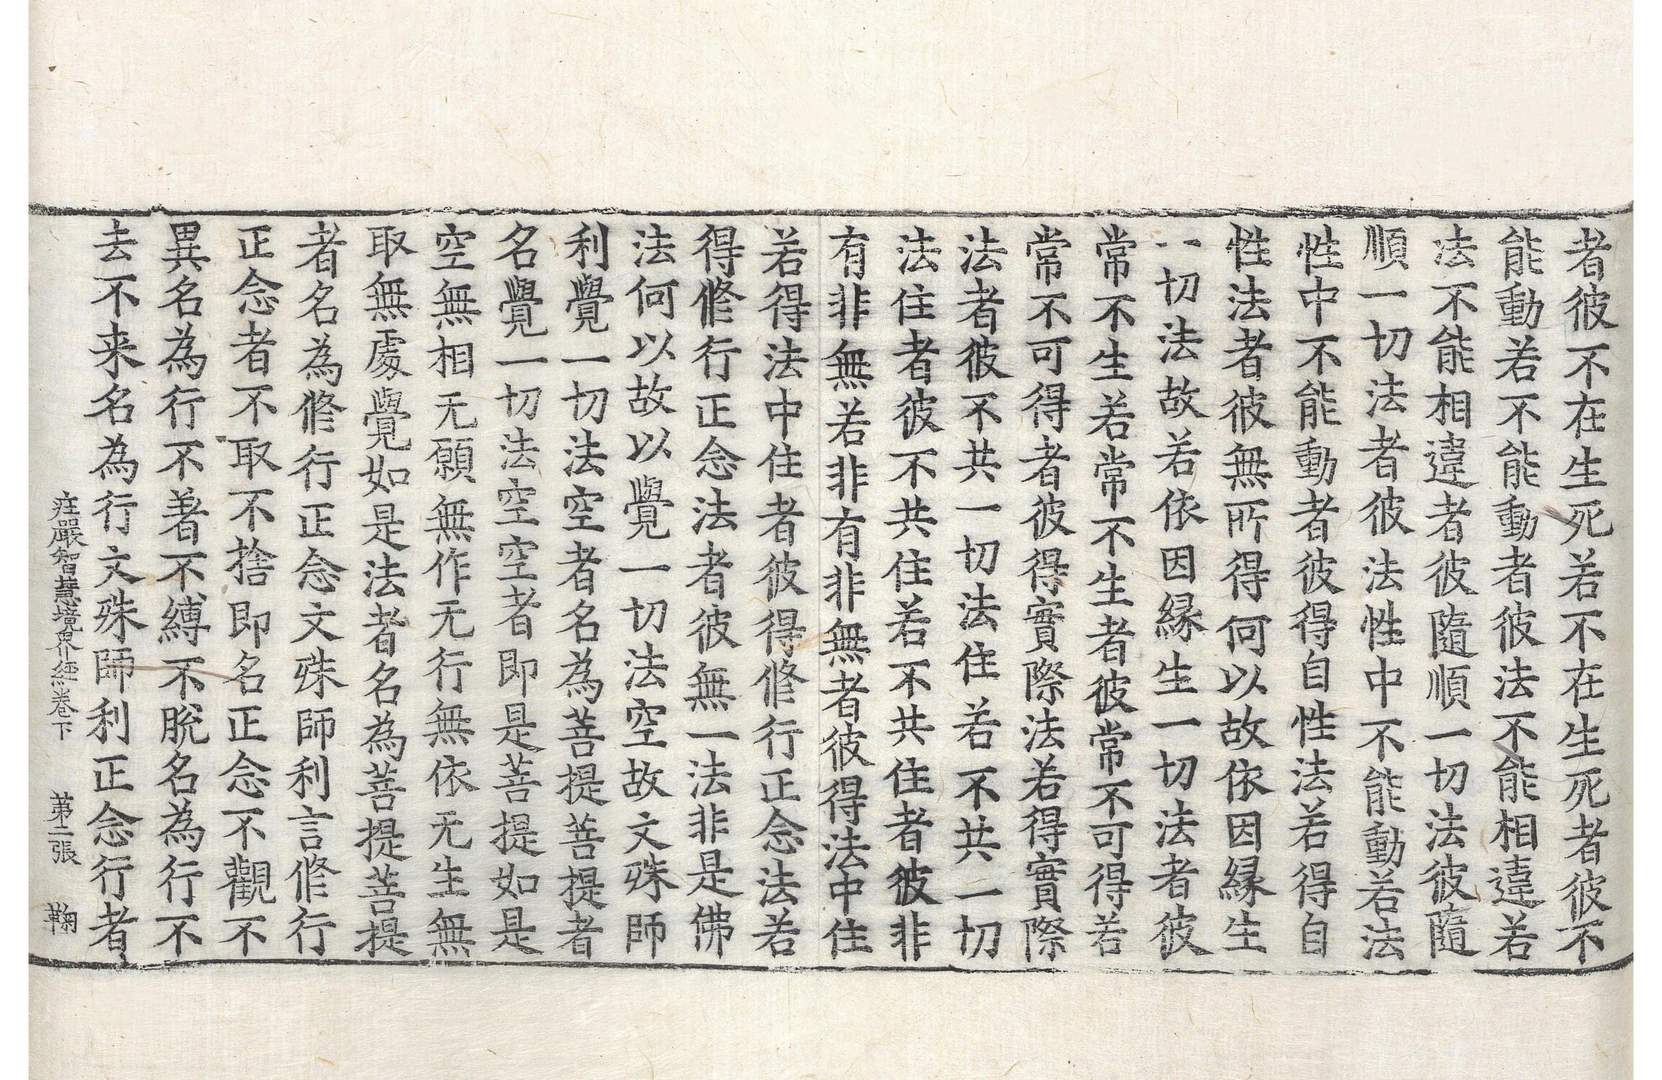 者彼不在生死若不在生死者彼不
能動若不能動者彼法不能相違若
法不能相違者彼隨順一切法彼隨
順一切法者彼法性中不能動若法
性中不能動者彼得自性法若得自
性法者彼無所得何以故依因緣生
一切法故若依因緣生一切法者彼
常不生若常不生者彼常不可得若
常不可得者彼得實際法若得實際
法者彼不共一切法住若不共一切
法住者彼不共住若不共住者彼非
有非無若非有非無者彼得法中住
若得法中住者彼得脩行正念法若
得脩行正念法者彼無一法非是佛
法何以故以覺一切法空故文殊師
利覺一切法空者名為菩提菩提者
名覺一切法空空者即是菩提如是
空無相无願無作无行無依无生無
取無處覺如是法者名為菩提菩提
者名為脩行正念文殊師利言脩行
正念者不取不捨即名正念不觀不
異名為行不著不縛不脫名為行不
去不来名為行文殊師利正念行者
庄嚴智慧境界經卷下　第二張　鞠